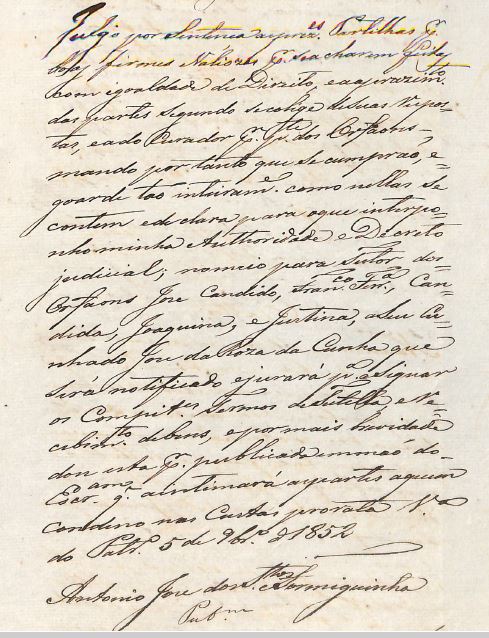 Julgo por Sentença as prez.es Partilhas p.
boas firmes Valiozas p. se acharem feitas
com igoaldade de Direito, e a aprazim.to
das partes segundo se colige de suas respos-
tas, e a do Curador G. p.te dos Orfaons-
mando por tanto que se cumprão, e
goardetão inteiram.e como nellas se
contem e declara para o que interpo-
nho minha Authoridade e Decreto
judicial; nomeio para Tutor dos
Orfaons Jose Candido, Fran.co Frr.a, Can-
dida, Joaquina, e Justina, a seu Cu-
nhado Jose da Roza da Cunha que
será notificado e jurará p.a asignar
os Compet.es termos de Tutella, e Re-
cebim.to de bens, e por mais brevidade
dou esta p. publicada em mão do
Escr.am q. a intimará as partes a quem
condeno nas Custas prorata V.a
do Patr.o 5 de 9br.o d 1852
Antonio Jose dos S.tos Formiguinha
Pub.m